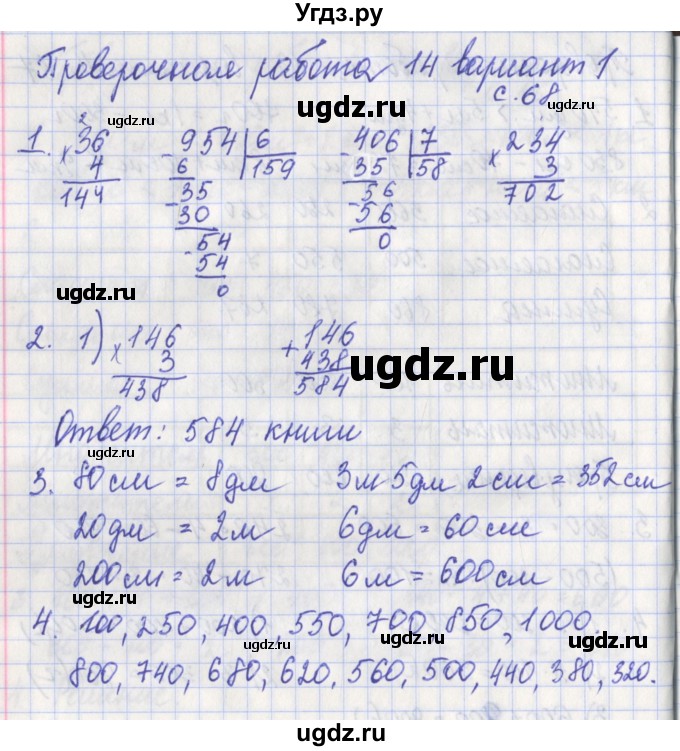 Угдз.ру
Проверочная работа 14 вариант 1
с. 68
1. 2
36 × 4 144
- 954 6 159 6 - 35 30 - 54 54 0
- 406 7 58 35 - 56 56 0
1
× 234 3 702
ugdz.ru ugdz.ru
ugdz.ru
2. 1) × 146 3 438
+ 146 438 584
ugdz.ru
Ответ: 584 книги
3. 80 см = 8 дм 3м 5дм 2 см = 352 см
ugdz.ru
20 дм = 2 м 6 дм = 60 см
ugdz.ru
200 см = 2 м 6 м = 600 см
ugdz.ru
4. 100, 250, 400, 550, 700, 850, 1000.
ugdz.ru ugdz.ru
800, 740, 680, 620, 560, 500, 440, 380, 320.
ugdz.ru ugdz.ru